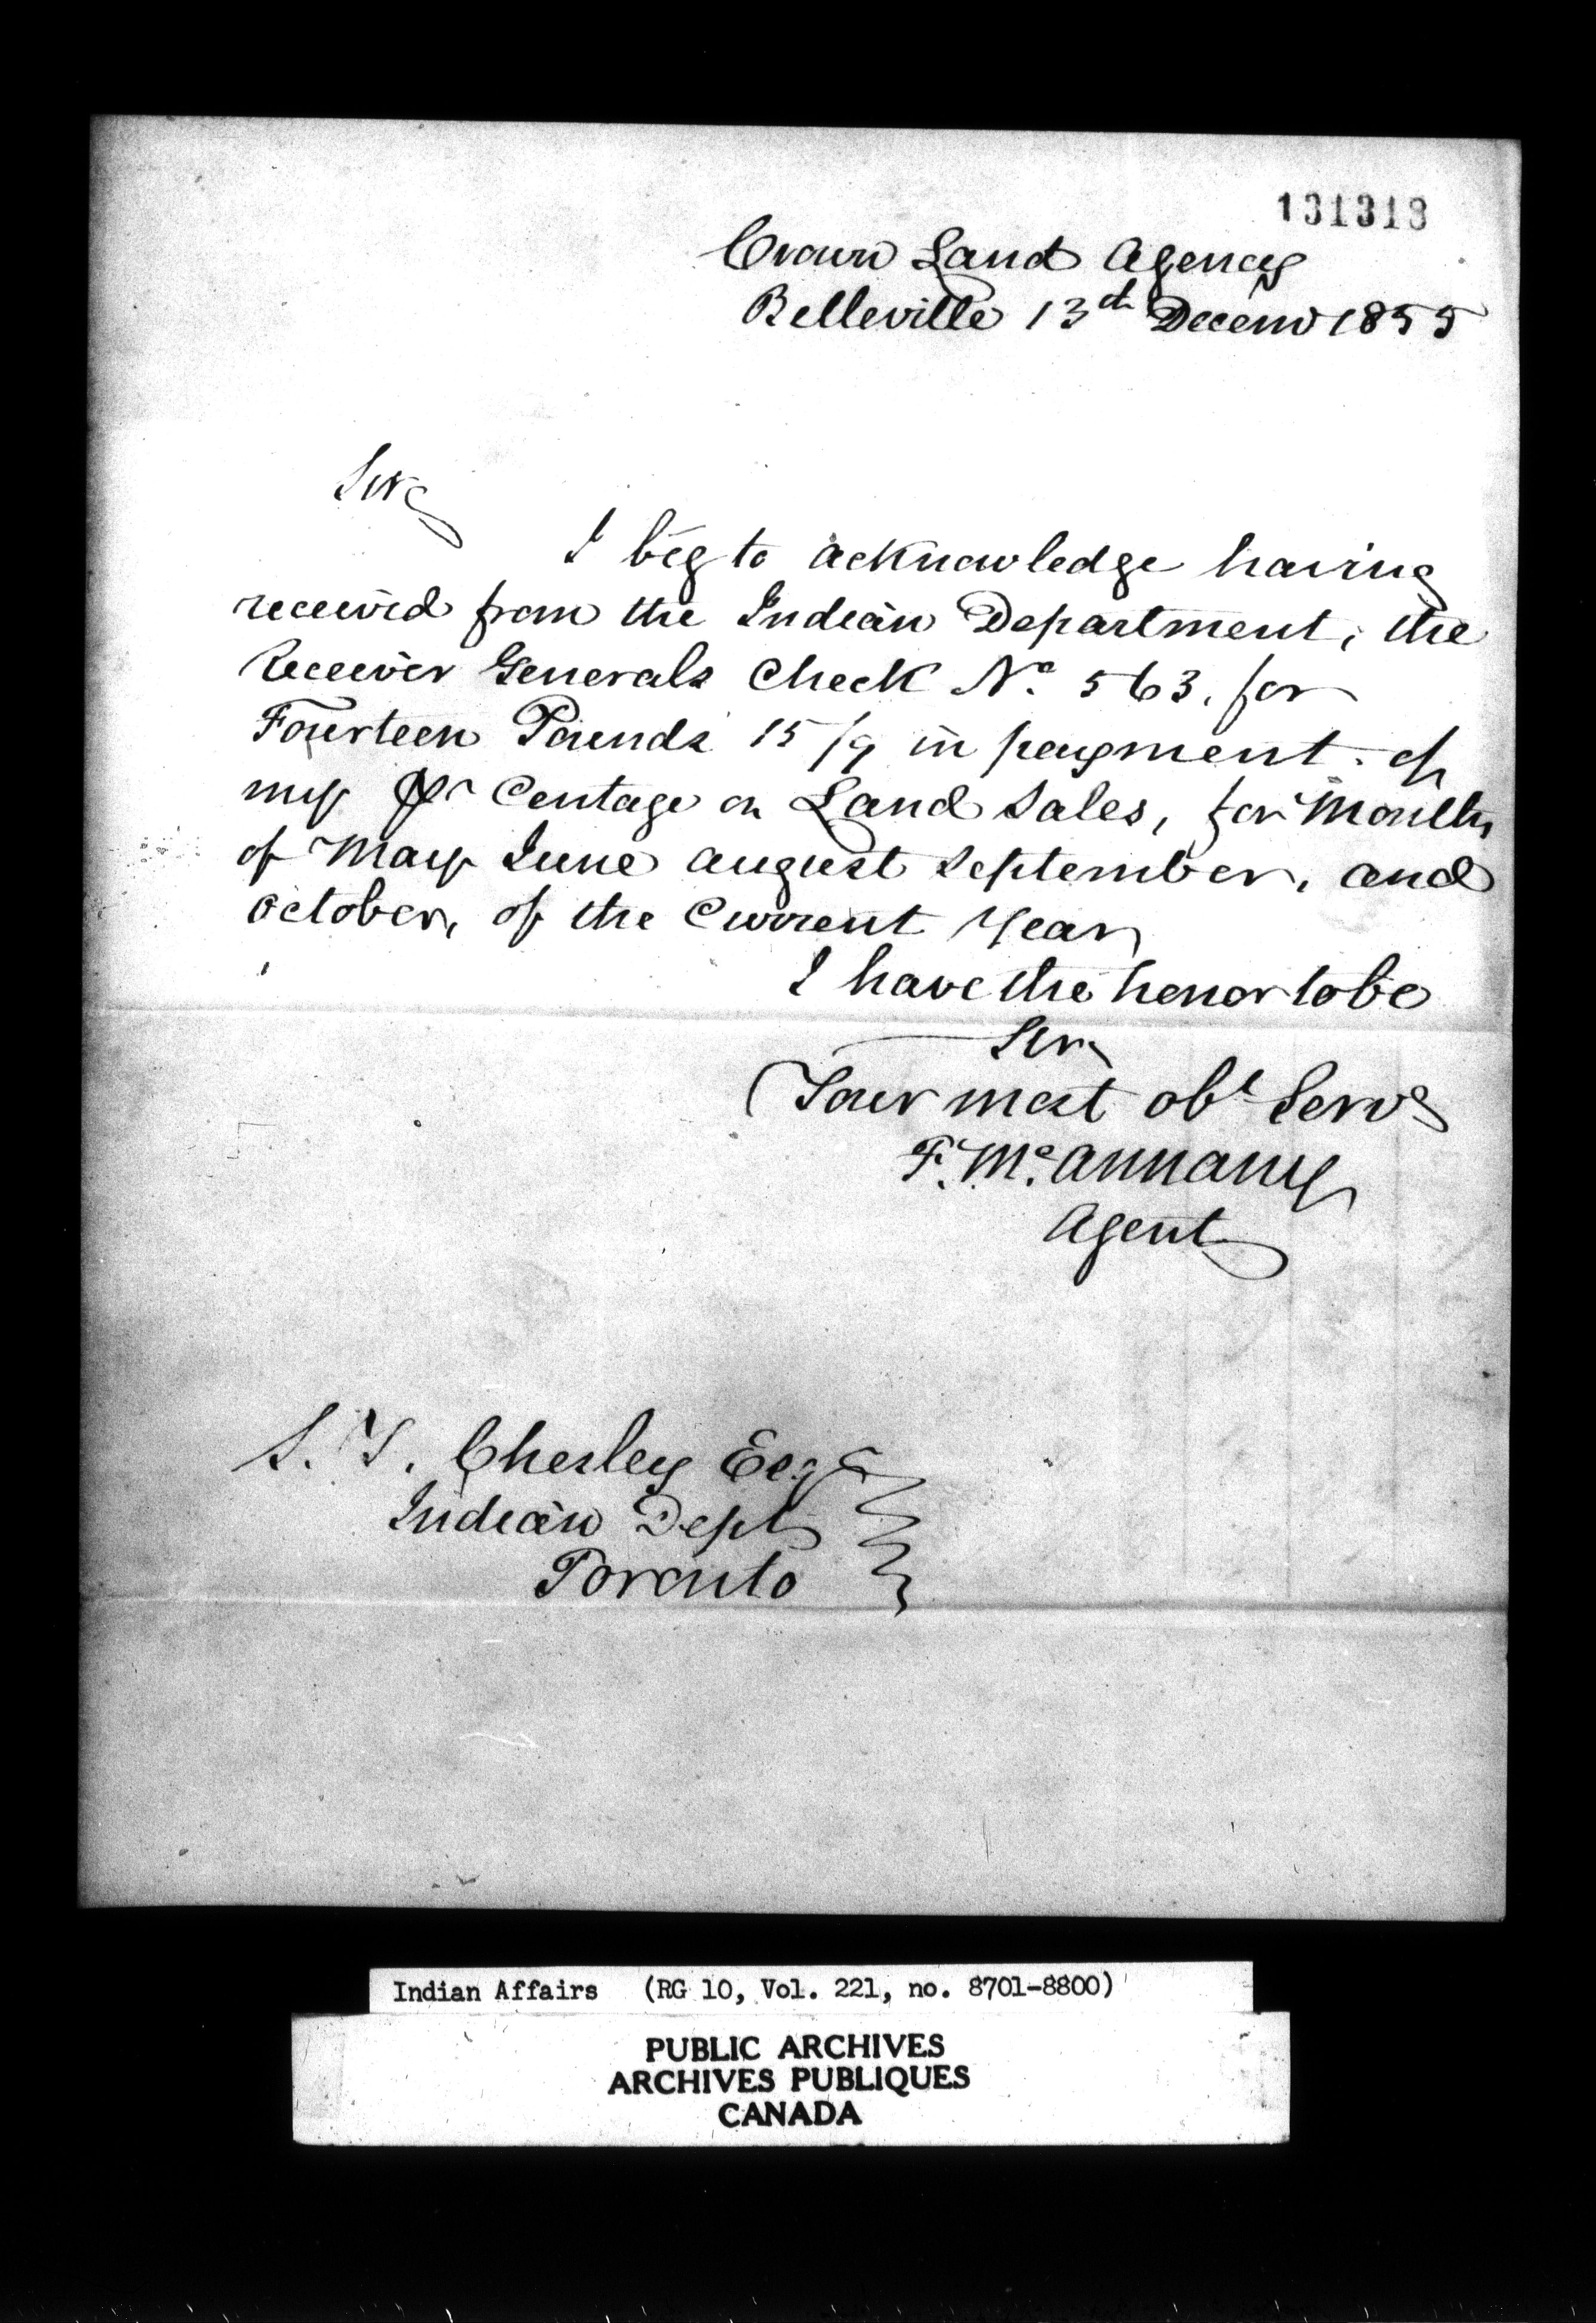 131313
Crown Land Agency
Belleville 13th Decem 1855
Sir
I beg to acknowledge having
received from the Indian Department, the
Receiver Generals Check No. 563. for
Fourteen Pounds 15/9 in payment of
my Pr Centage on Land Sales, for Months
of May June August September, and
October, of the Current Year
I have the honor to be
Sir
Your most obt Servt
F. Mc.Annany
Agent
S. Y. Chesley Esqr
Indian Dept
Toronto
Indian Affairs (RG 10, Vol. 221, no. 8701-8800)
PUBLIC ARCHIVES
ARCHIVES PUBLIQUES
CANADA